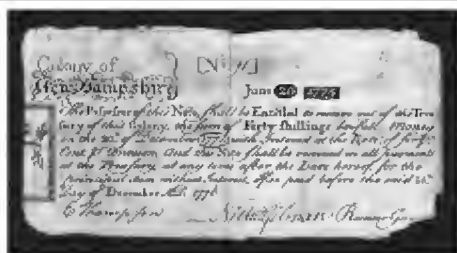 Colony of
New Hampshire
[No]
June 20 1775
The Possessor of this Note shall be Entitled to receive out of the Trea
sury of this Colony, the sum of Forty Shillings lawfull Money
on the 20th December 1776 with Interest at the Rate of
Cent and this Note shall be received in all payments
at the Treasury at any time after the Date hereof for the
Principal Sum without Interest, if paid before the said 20th
Day of December A.D. 1776
E Thompson